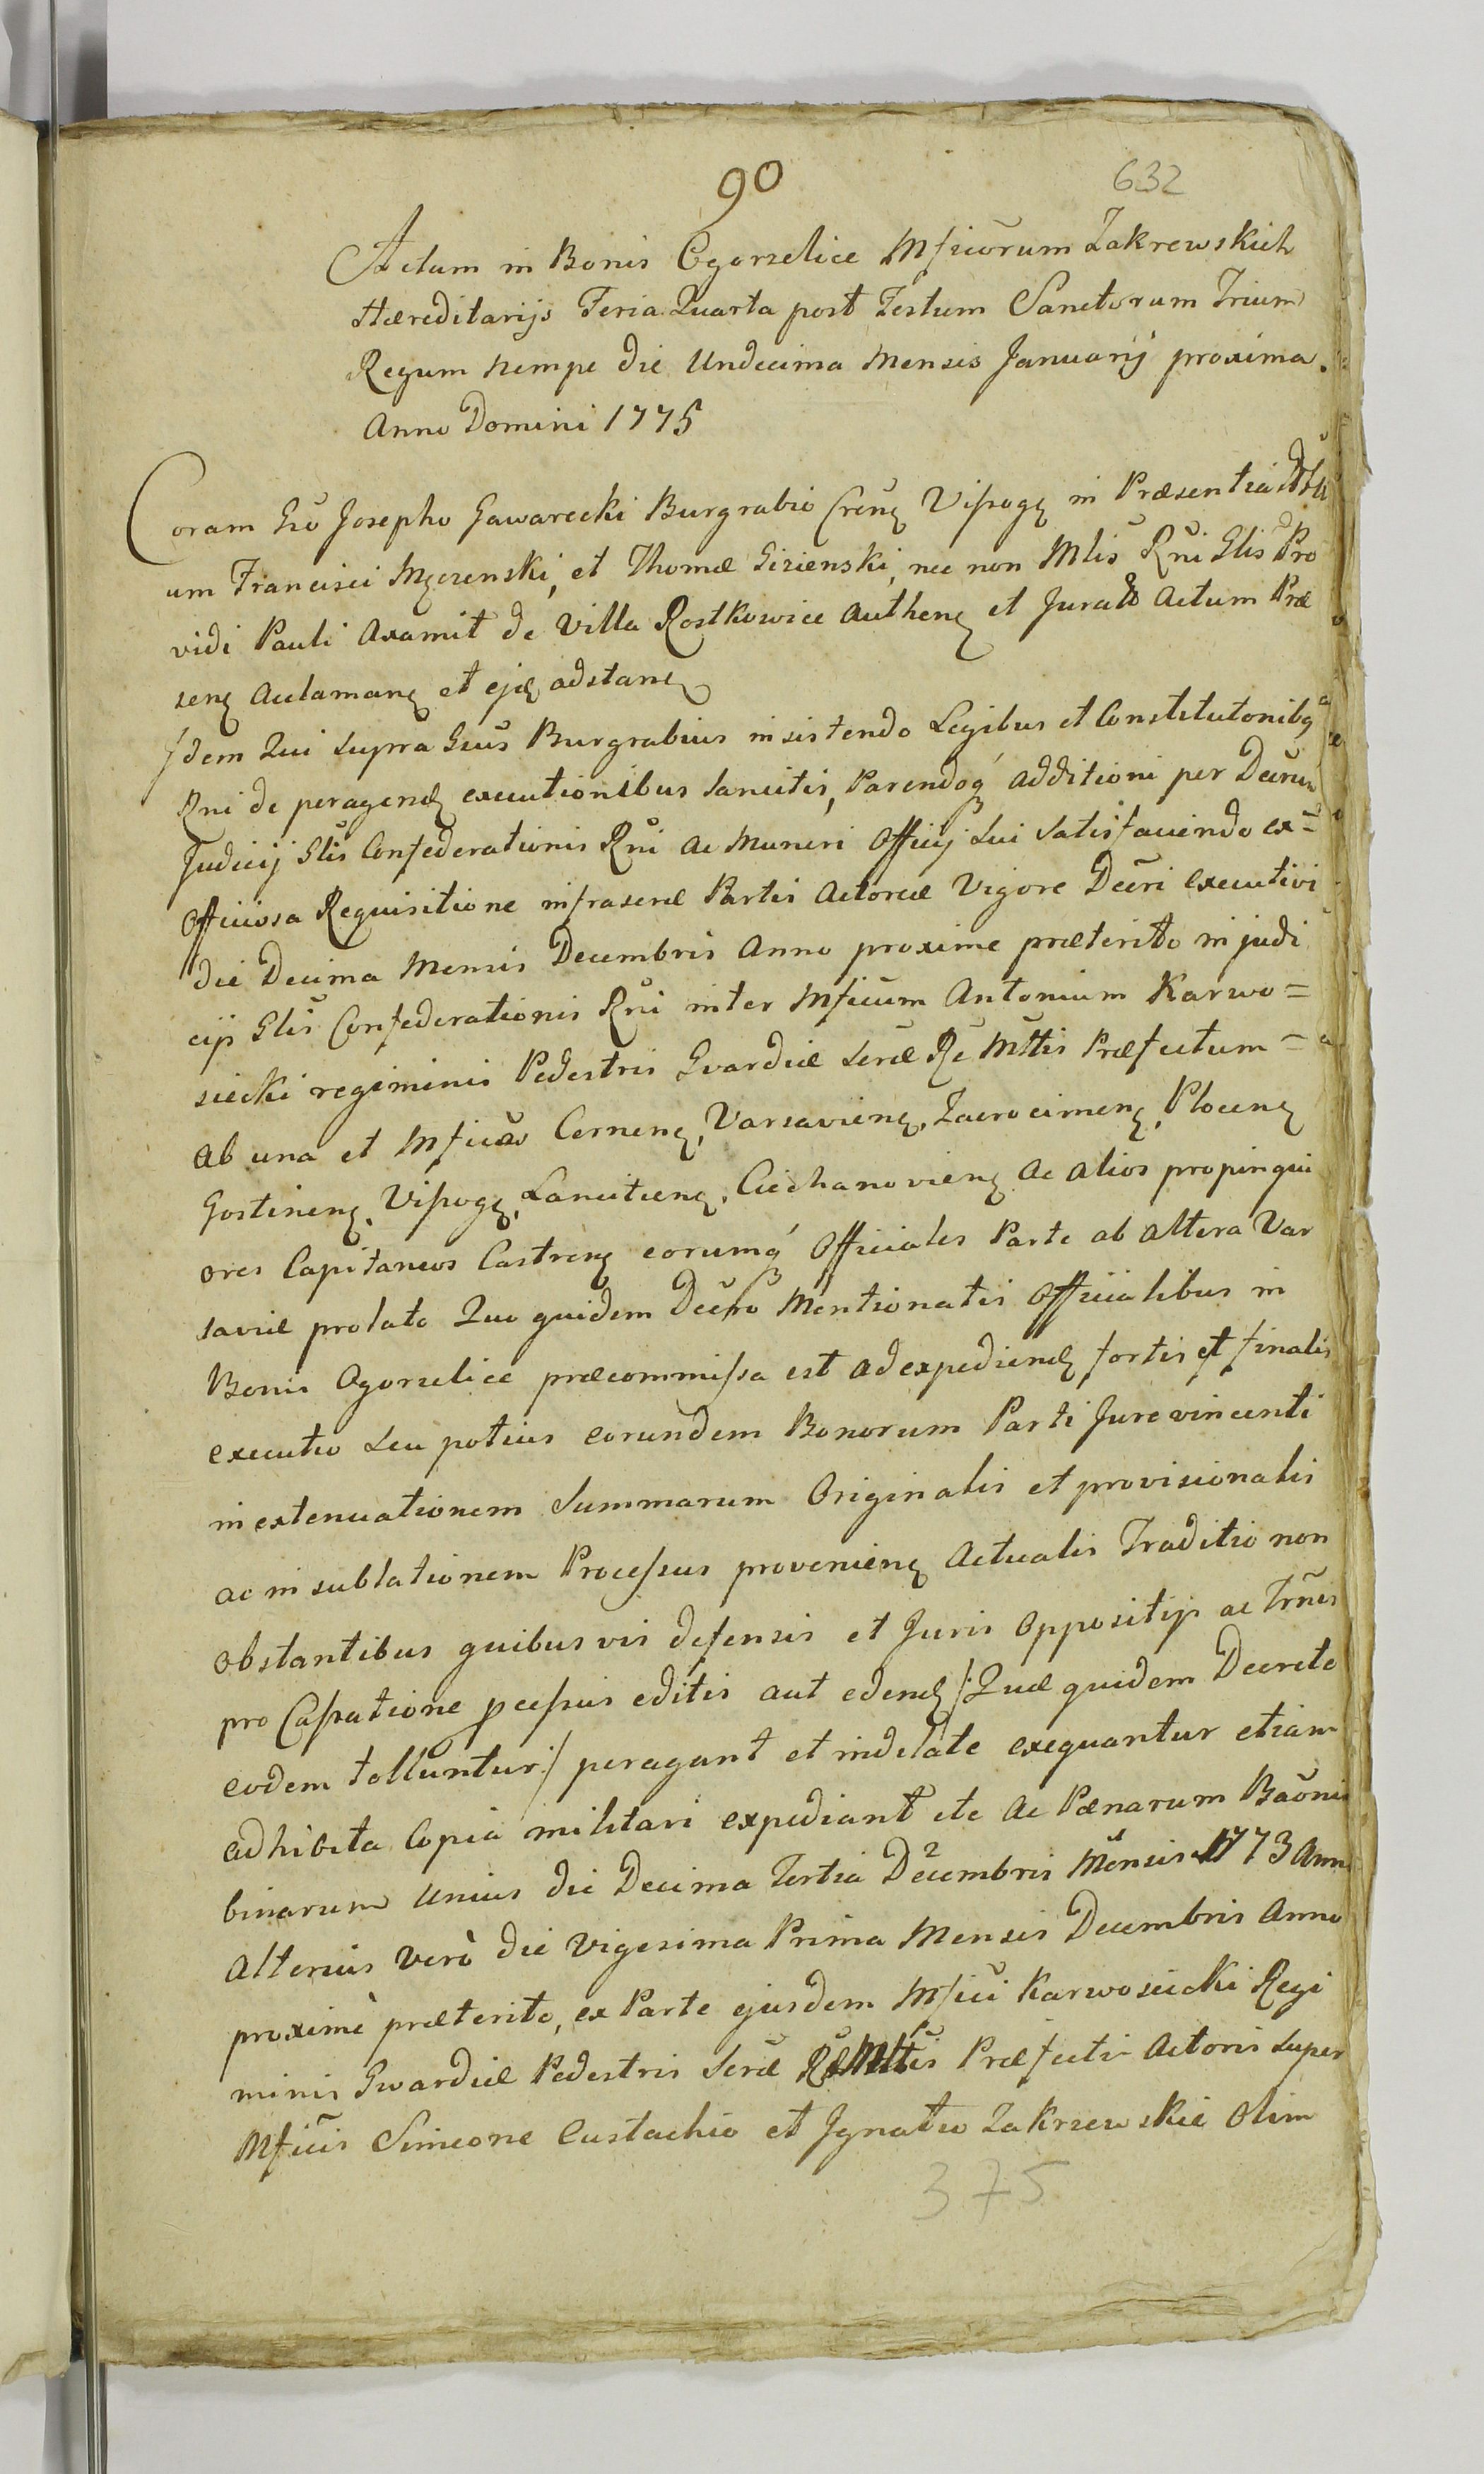 90
632
Actum in Bonis Ogorzelice Mficõrum Zakrewskich
Hæreditarijs Feria Quarta post Festum Sanctorum Trium
Regum nempe die Undecima Mensis Januarij proxima.
Anno Domini 1775
Coram Gso Josepho Gawarecki Burgrabio Crenę Vissogę in Præsentia
um Francisci Męczenski, et Thomæ Gizienski, nec non Mlis Rñi Glis Pro
vidi Pauli Axamit de Villa Rostkowice Authenę et Jurato Actum Præ
senę Aclamanę et ejdę adstanę
Jdem Qui supra Gsus Burgrabius insistendo Legibus et Constitutonibq
Rni de peragendę executionibus sancitis, Parendoq́ additioni per Decrum
Judicij Glis Confederationis Rñi ac Muneri Officij sui satisfaciendo ex=
Officiosa Requisitione infrascræ Partis Actoreæ Vigore Decri executivi
die Decima Mensis Decembris Anno proxime præterito in judi
cijs Glis Confederationis Rñi inter Mficum Antonium Karwo=
siecki regiminis Pedestris Gvardiæ Seræ Ræ Mttis Præfectum =
ab una et Mficos Cernenę, Varsavienę, Zacrocimenę, Plocenę
Gostinenę, Vissogę, Lancitienę, Ciechanovienę ac alios propinqui
ores Capitaneos Castrenę eorumq́ Officiales Parte ab altera Var
saviæ prolato Quo quidem Decro Mentionatis Officialibus in
Bonis Ogorzelice præcommissa est ad expediendę fortis et finalis
executio seu potius eorundem Bonorum Parti Jure vincenti
in extenuationem Summarum Originalis et provisionalis
ac in sublationem Processus provenienę Actualis Traditio non
obstantibus quibusvis defensis et Juris Oppositijs ac Trñis
pro Cassatione pcessus editis aut edendę /:Quæ quidem Decreto
eodem tolluntur:/ peragant et indelate exequantur etiam
adhibita Copia militari expediant etc Ac Pænarum Baõnis
binarum Unius die Decima Tertia Decembris Mensis 1773 Anni
Alterius verò die Vigesima Prima Mensis Decembris Anno
proximè præterito, ex Parte ejusdem Mfici Karwosiecki Regi
minis Gwardiæ Pedestris Seræ Ræ Mttis Præfecti Actoris super
Mficis Simeone Eustachio et Jgnatio Zakrzewskie Olim
375